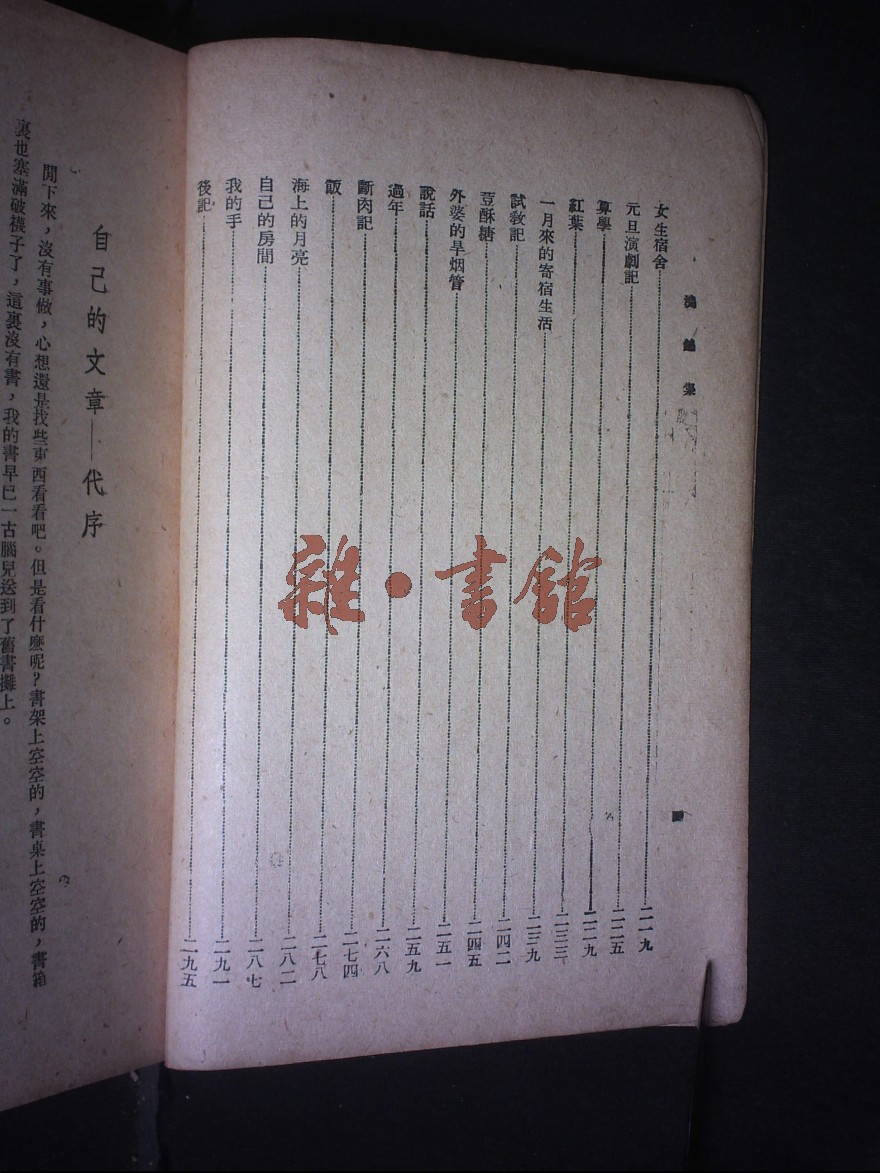 集
女生宿舍 二一九
元旦演劇記 二二五
算學 二二九
紅葉 二三三
一月來的寄宿生活 二三九
試教記 二四二
荳酥糖 二四五
外婆的旱烟管 二五一
說話 二五九
過年 二六八
斷肉記 二七四
飯 二七八
海上的月亮 二八二
自己的房間 二八七
我的手 二九一
後記 二九五
雜·書館
自己的文章——代序
閒下來，沒有事做，心想還是找些東西看看吧。但是看什麼呢？書架上空空的，書桌上空空的，書箱
裏也塞滿破襪子了，這裏沒有書，我的書早已一古腦兒送到了舊書攤上。